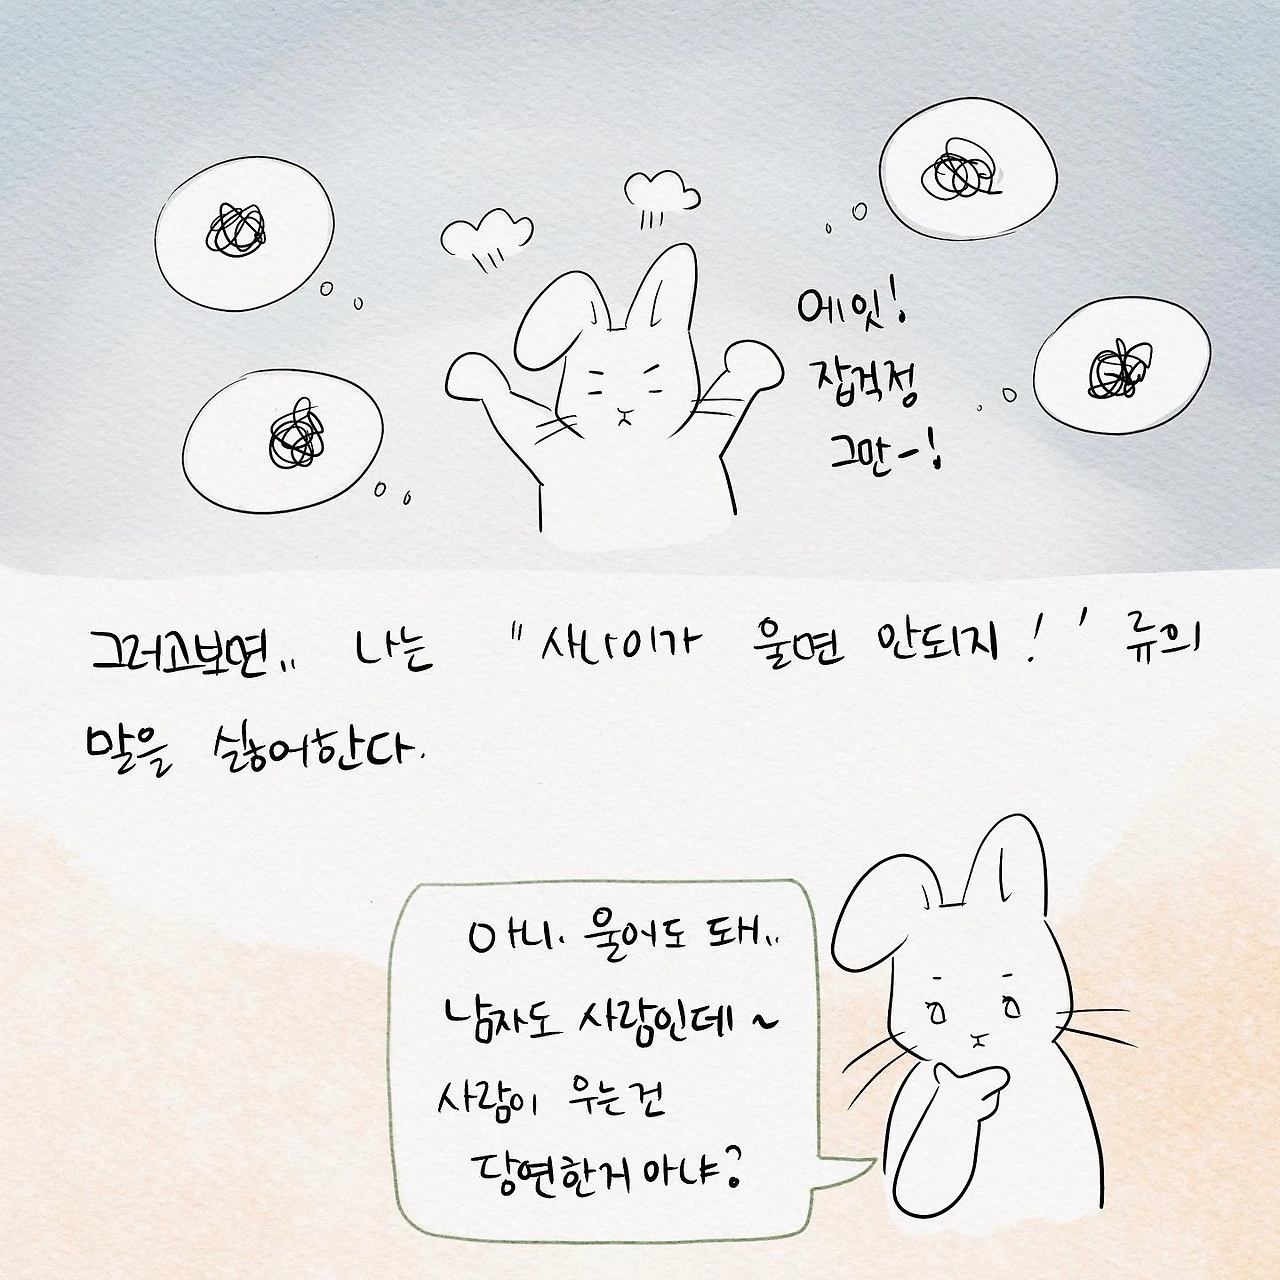 에잇!
잡걱정
그만-!
그러고보면.. 나는 "사나이가 울면 안되지!' 류의
말을 싫어한다.
아니. 울어도 돼..
남자도 사람인데~
사람이 우는건
당연한거 아냐?